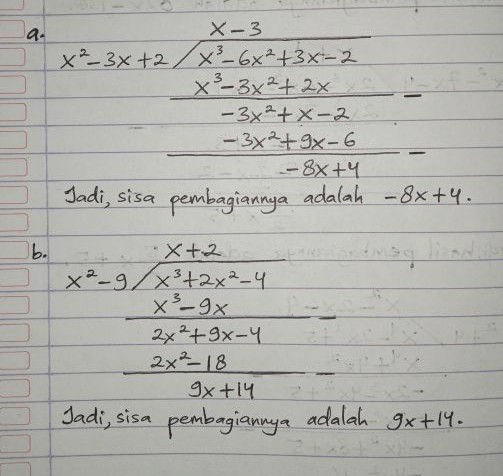 a. x - 3
x² - 3x + 2 / x³ - 6x² + 3x - 2
x³ - 3x² + 2x
-
-3x² + x - 2
-3x² + 9x - 6
-
-8x + 4
Jadi, sisa pembagiannya adalah -8x + 4.
b. x + 2
x² - 9 / x³ + 2x² - 4
x³ - 9x
-
2x² + 9x - 4
2x² - 18
-
9x + 14
Jadi, sisa pembagiannya adalah 9x + 14.